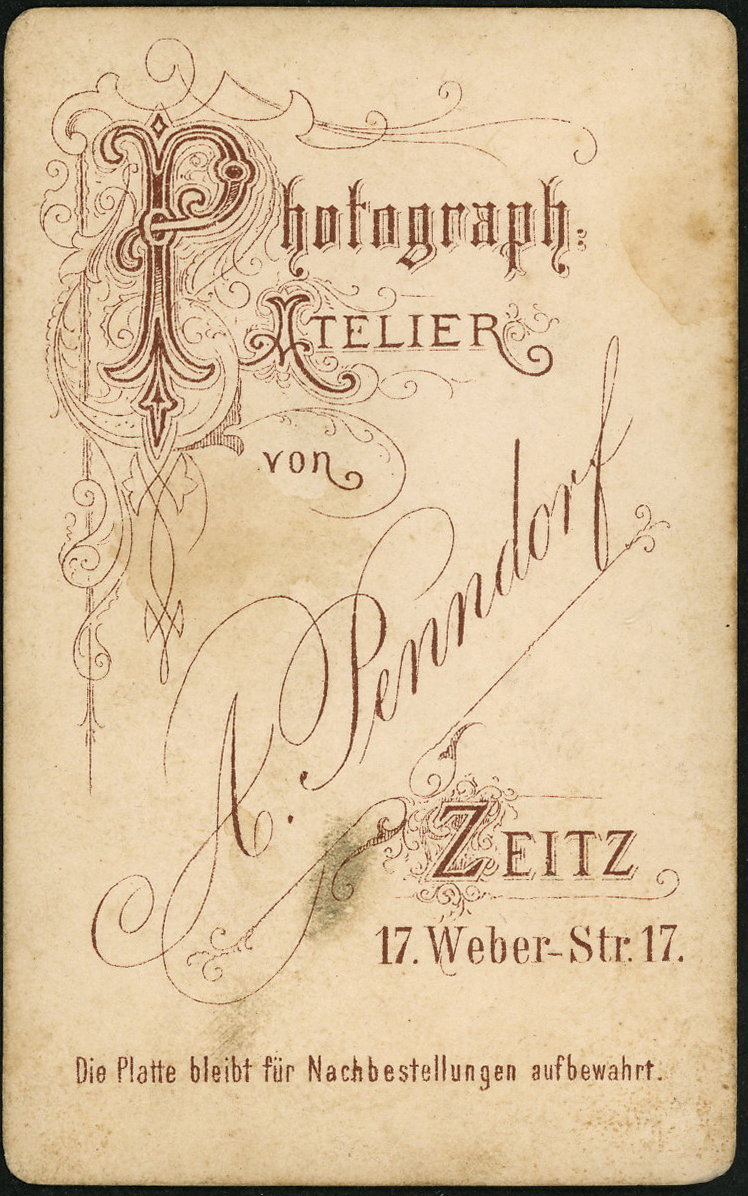 Photograph:
ATELIER
von
A. Penndorf
ZEITZ
17. Weber-Str. 17.
Die Platte bleibt für Nachbestellungen aufbewahrt.